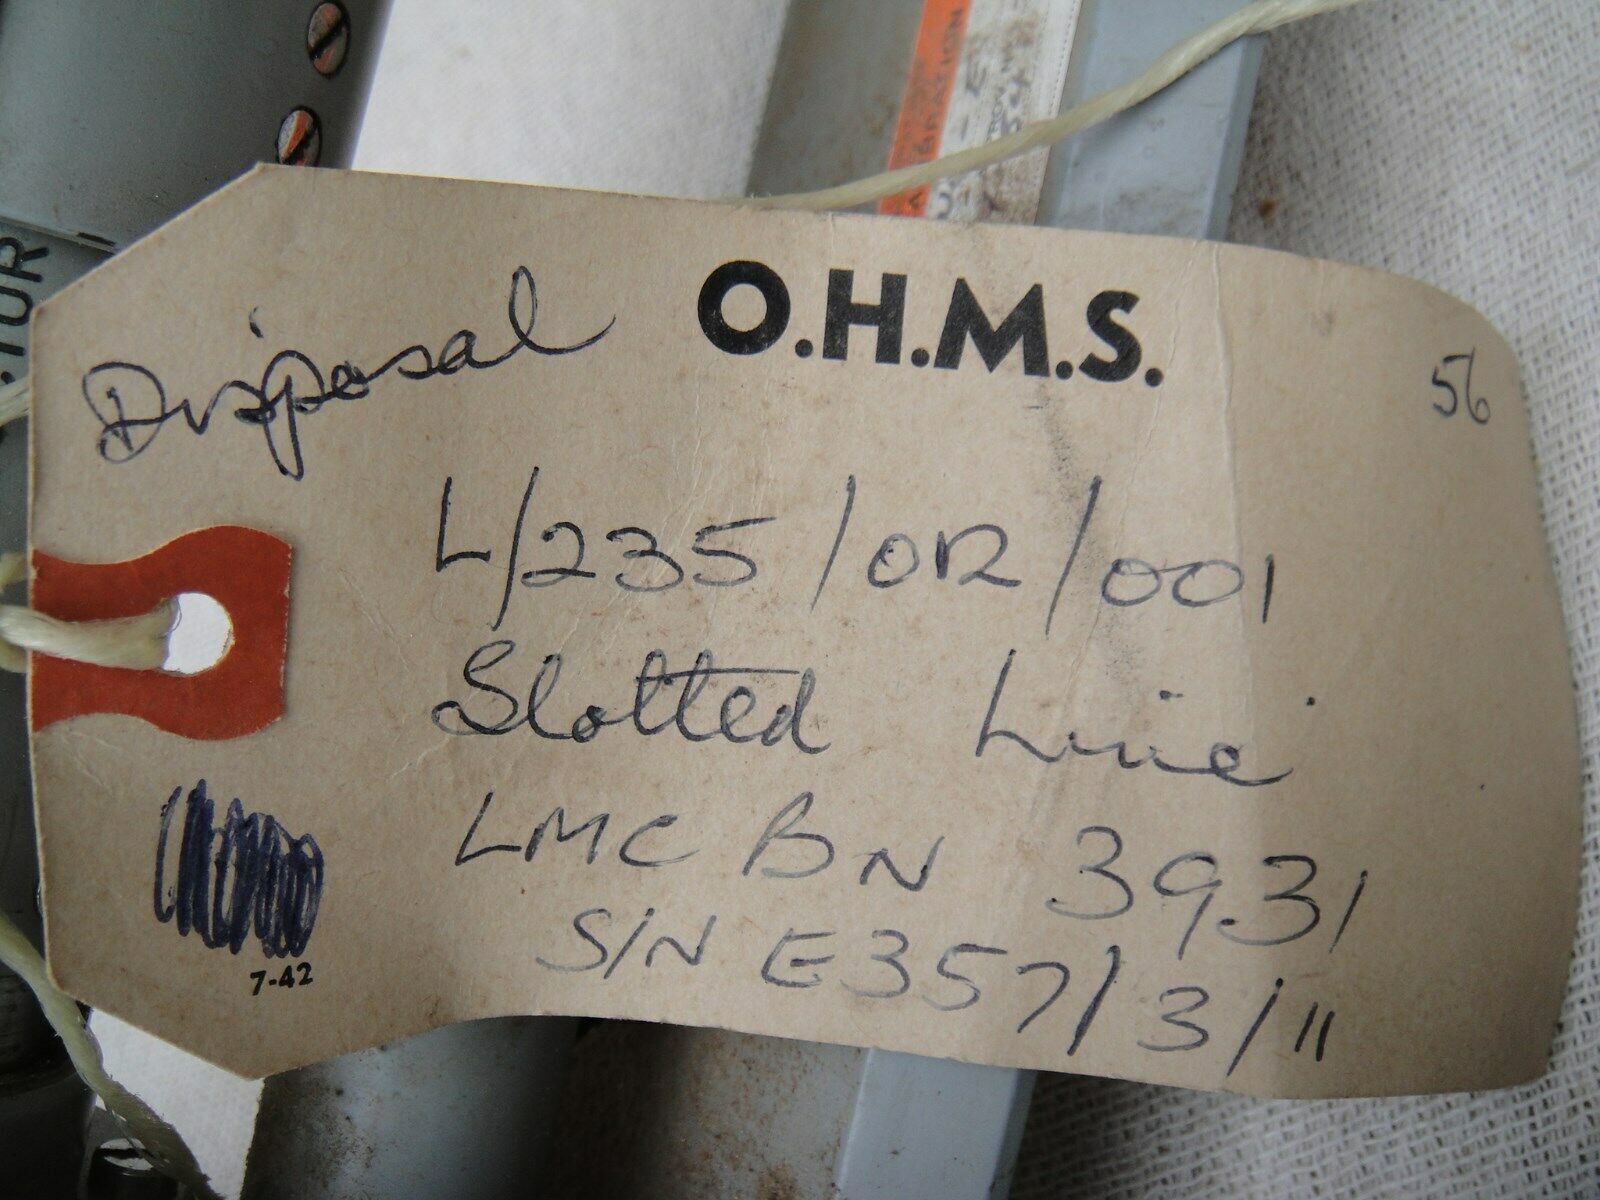 O.H.M.S.
Disposal
56
L/235/OR/001
Slotted Line
LMC BN 3931
S/N E357/3/11
7-42